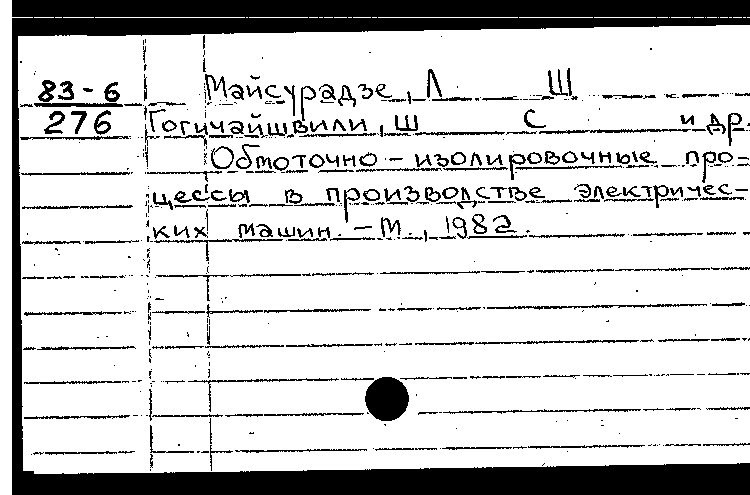 83-6 Майсурадзе, Л Ш
276 Гогичайшвили, Ш С и др.
Обмоточно-изолировочные про=
цессы в производстве электричес-
ких машин. - М., 1982.